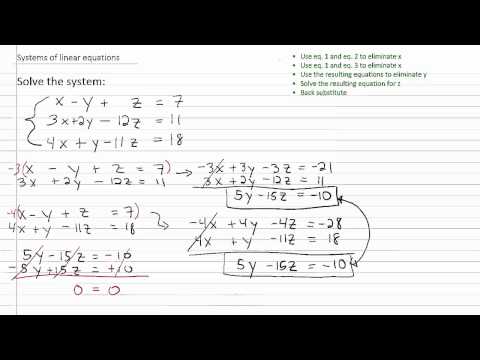 Systems of linear equations
• Use eq. 1 and eq. 2 to eliminate x
• Use eq. 1 and eq. 3 to eliminate x
• Use the resulting equations to eliminate y
• Solve the resulting equation for z
• Back substitute
Solve the system:
x - y + z = 7
3x + 2y - 12z = 11
4x + y - 11z = 18
-3(x - y + z = 7)
3x + 2y - 12z = 11
-3x + 3y - 3z = -21
3x + 2y - 12z = 11
5y - 15z = -10
-4(x - y + z = 7)
4x + y - 11z = 18
-4x + 4y - 4z = -28
4x + y - 11z = 18
5y - 15z = -10
5y - 15z = -10
-5y + 15z = +10
0 = 0